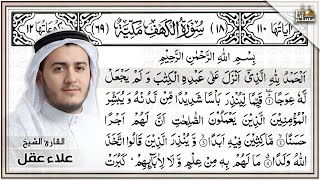 اٰيَاتُهَا ١١٠ (١٨) سُوْرَةُ الْكَهْفِ مَكِّيَّةٌ (٦٩) رُكُوْعَاتُهَا ١٢
بِسْمِ اللّٰهِ الرَّحْمٰنِ الرَّحِيْمِ
اَلْحَمْدُ لِلّٰهِ الَّذِيْۤ اَنْزَلَ عَلٰى عَبْدِهِ الْكِتٰبَ وَ لَمْ يَجْعَلْ
لَّهٗ عِوَجًا ۟ قَيِّمًا لِّيُنْذِرَ بَاْسًا شَدِيْدًا مِّنْ لَّدُنْهُ وَ يُبَشِّرَ
الْمُؤْمِنِيْنَ الَّذِيْنَ يَعْمَلُوْنَ الصّٰلِحٰتِ اَنَّ لَهُمْ اَجْرًا
حَسَنًا ۟ مَّاكِثِيْنَ فِيْهِ اَبَدًا ۟ وَّ يُنْذِرَ الَّذِيْنَ قَالُوا اتَّخَذَ
اللّٰهُ وَلَدًا ۟ مَا لَهُمْ بِهٖ مِنْ عِلْمٍ وَّ لَا لِاٰبَآىِٕهِمْ ؕ كَبُرَتْ
القارئ الشيخ
علاء عقل